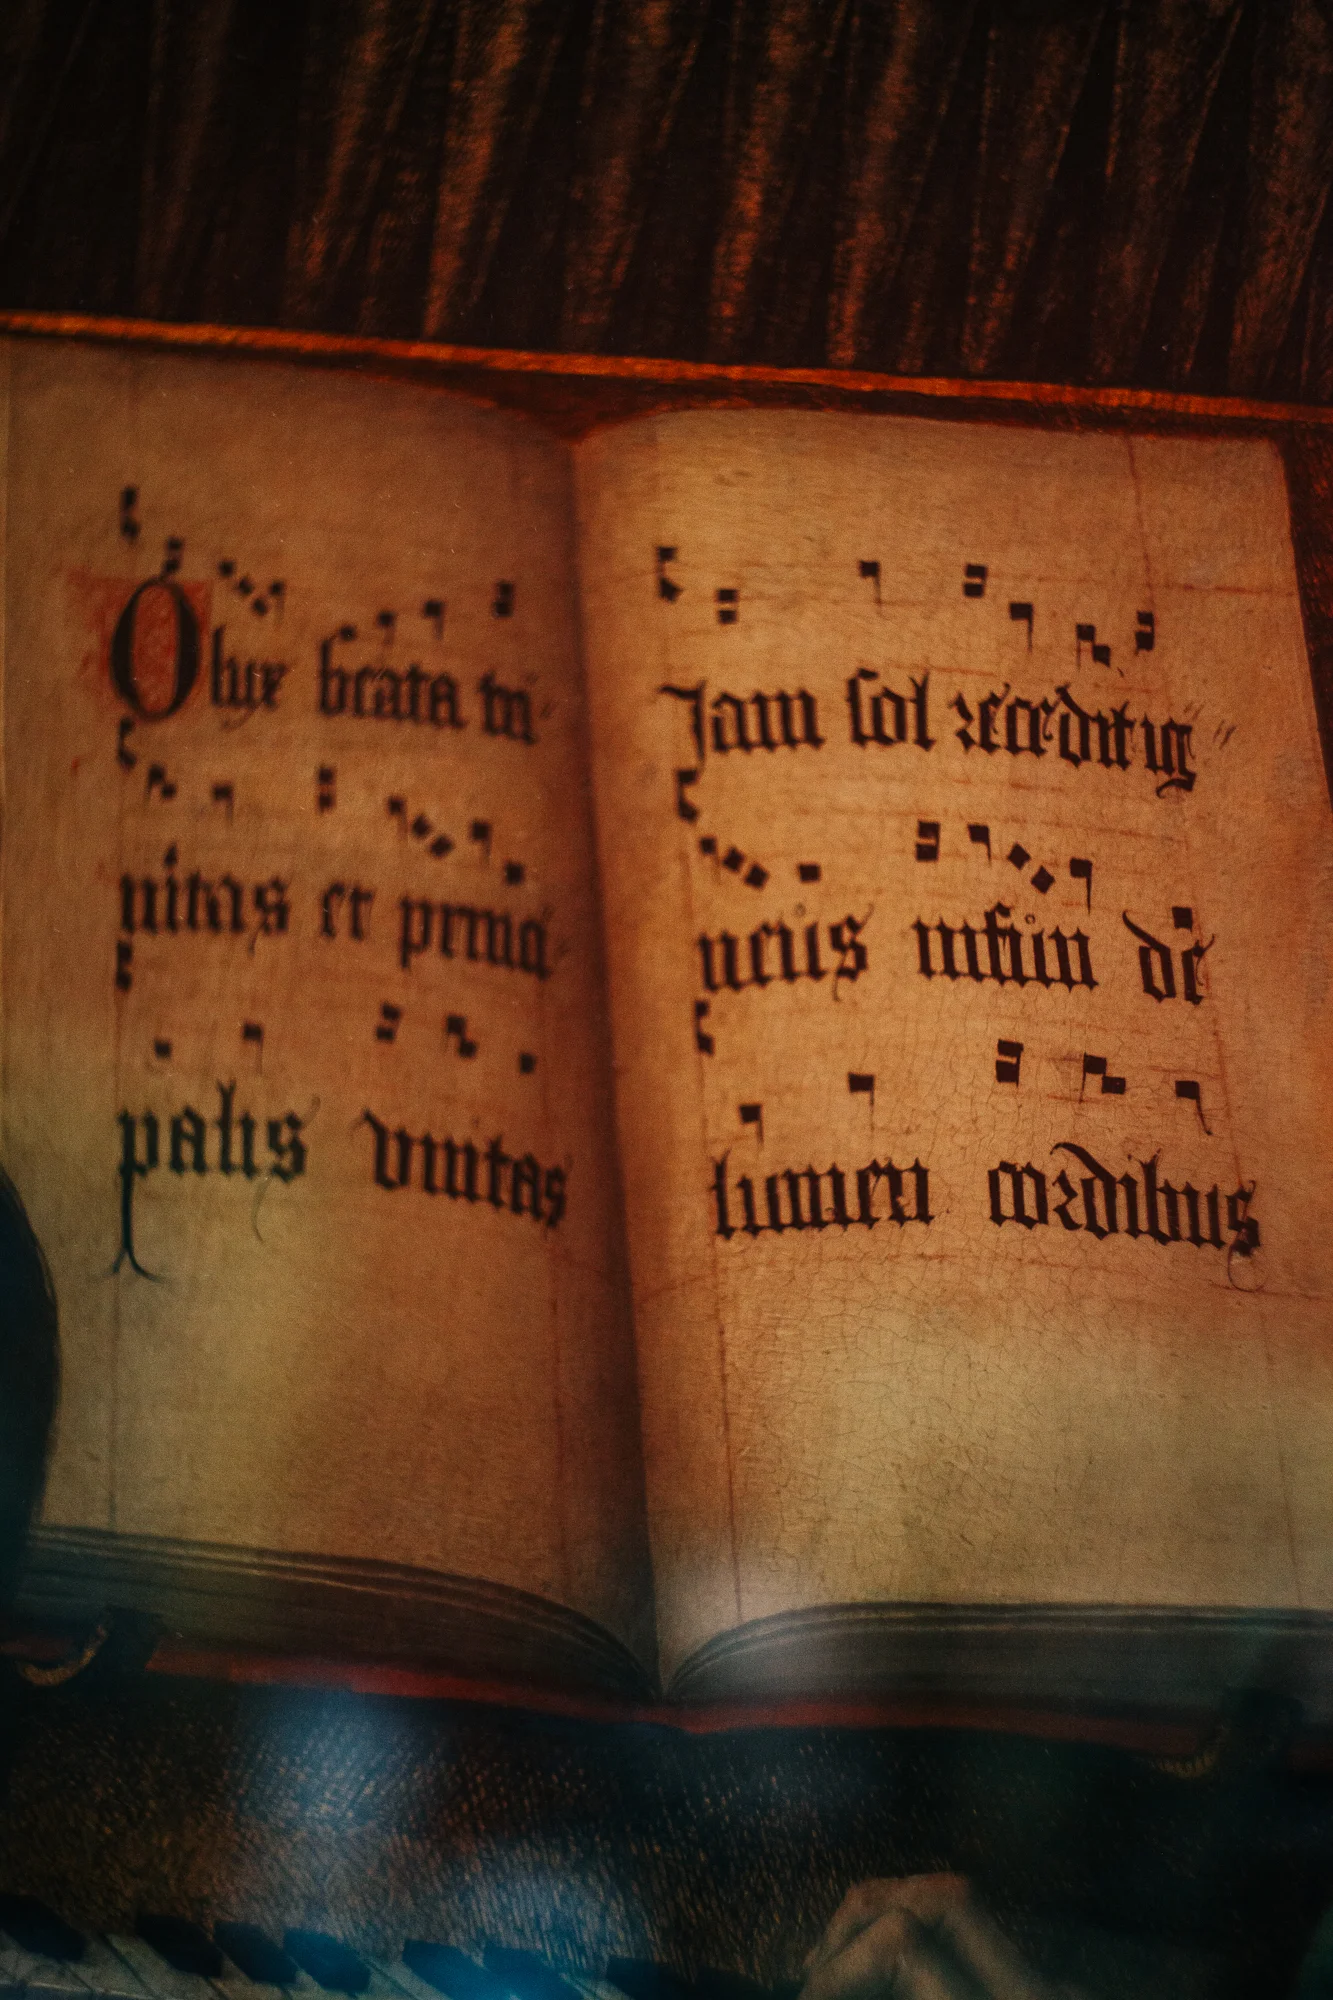 O lux beata tri-
nitas et princi-
palis unitas
Jam sol recedit ig-
neus infun de
lumen cordibus